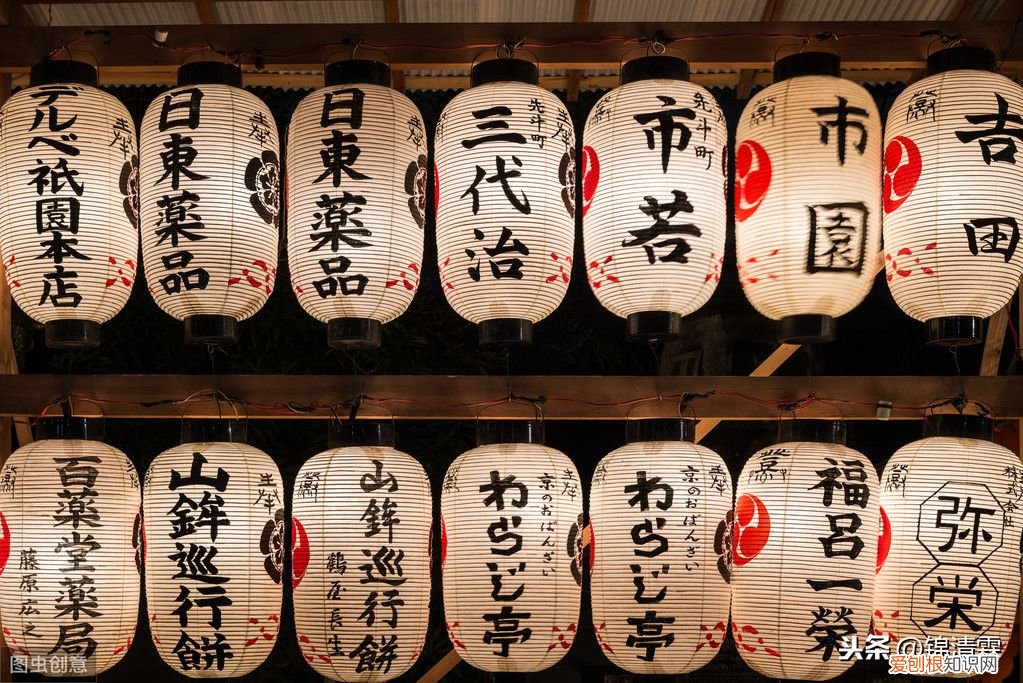 デルベ祇園本店
奉
日東薬品
奉
日東薬品
奉
先斗町
三代治
先斗町
市若
市園
吉田
百薬堂薬局
藤原広之
山鉾巡行餅
奉
山鉾巡行餅
鶴屋長生
京のおばんざい
わらじ亭
奉
京のおばんざい
わらじ亭
奉
福呂一
榮
株式会社
弥栄
图虫创意
头条@锦清霖
爱刨根知识网